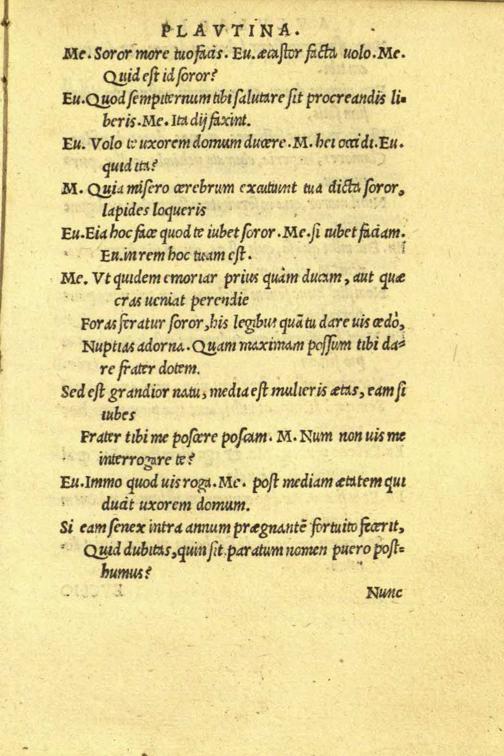 PLAVTINA.
Me. Soror more tuo facis. Eu. æcastor facta uolo. Me.
Quid est id soror?
Eu. Quod sempiternum tibi salutare sit procreandis li-
beris. Me. Ita dij faxint.
Eu. Volo te uxorem domum ducere. M. hei occidi. Eu.
quid ita?
M. Quia misero cerebrum excutiunt tua dicta soror,
lapides loqueris
Eu. Eia hoc face quod te iubet soror. Me. si iubet faciam.
Eu. in rem hoc tuam est.
Me. Vt quidem emoriar prius quàm ducam, aut quæ
cras ueniat perendie
Foras feratur soror, his legibus quã tu dare uis cedò,
Nuptias adorna. Quam maximam possum tibi da-
re frater dotem.
Sed est grandior natu, media est mulieris ætas, eam si
iubes
Frater tibi me poscere poscam. M. Num non uis me
interrogare te?
Eu. Immo quod uis roga. Me. post mediam ætatem qui
ducit uxorem domum.
Si eam senex intra annum prægnantẽ fortuito fecerit,
Quid dubitas, quin sit paratum nomen puero post-
humus?
Nunc